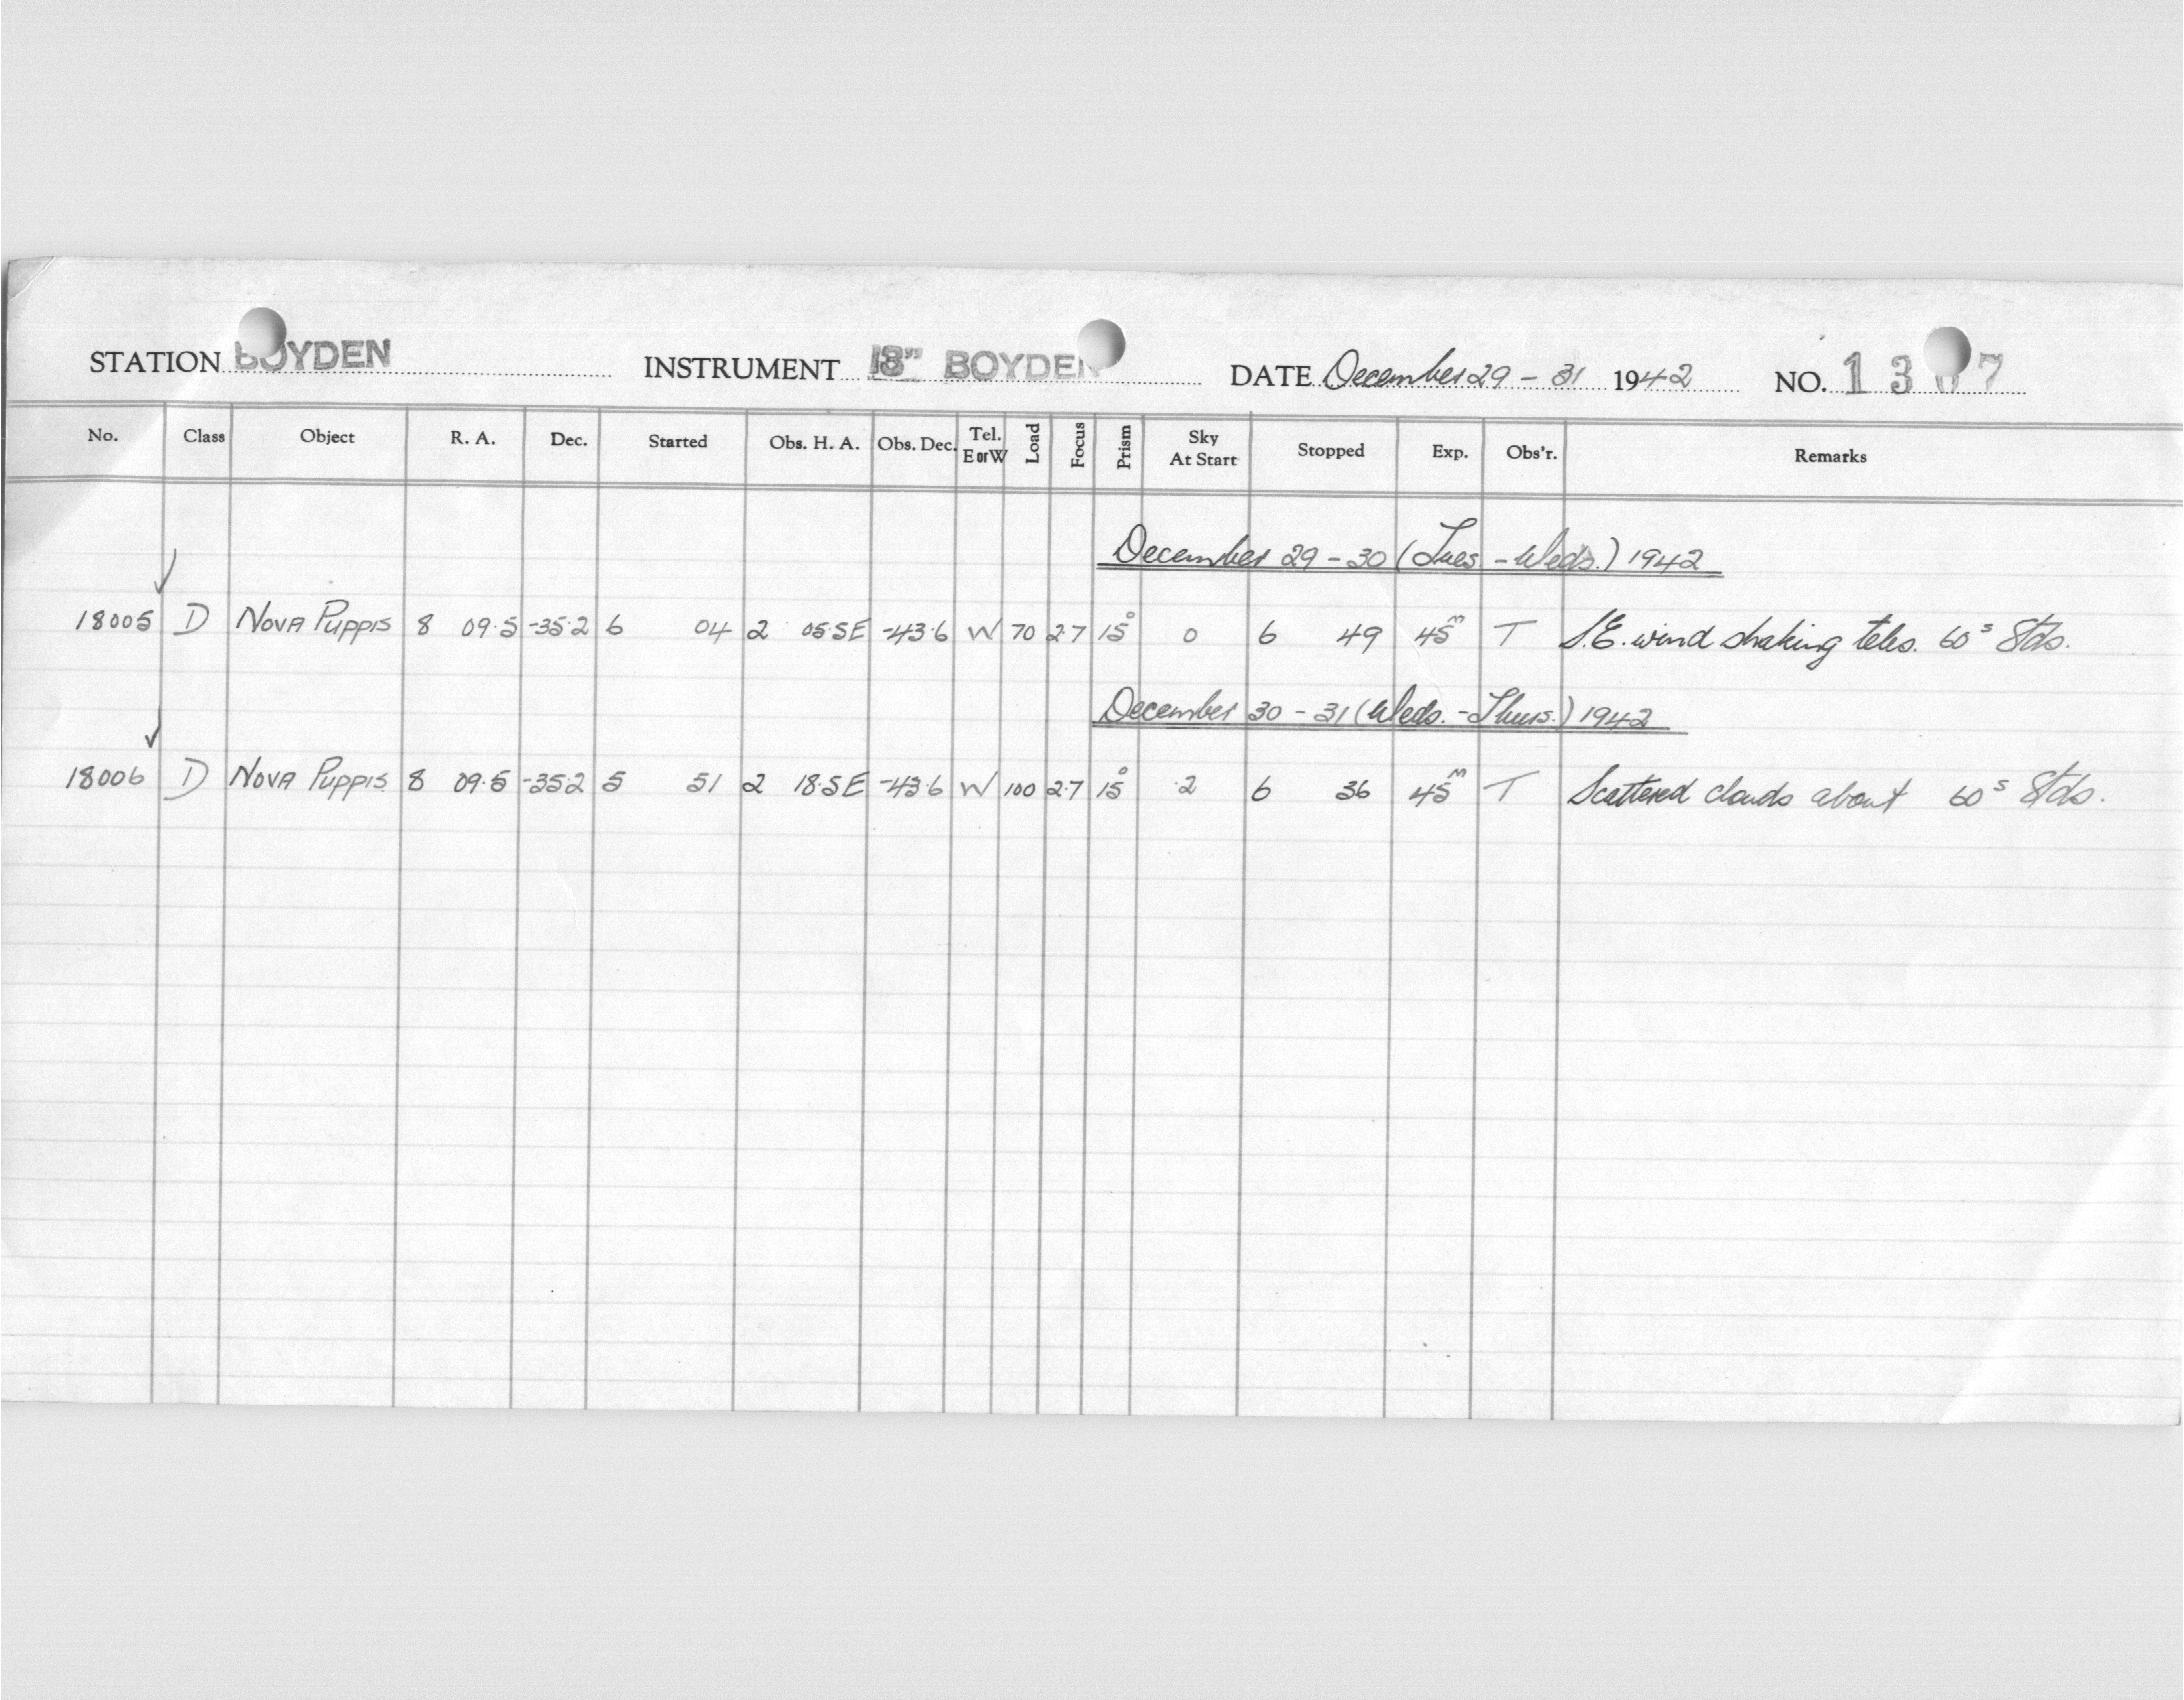 STATION BOYDEN INSTRUMENT 18" BOYDEN DATE December 29 - 31 1942 NO. 13 7
No. Class Object R. A. Dec. Started Obs. H. A. Obs. Dec. Tel. E or W Load Focus Prism Sky At Start Stopped Exp. Obs'r. Remarks
December 29 - 30 (Tues. - Weds.) 1942
18005 D NOVA PUPPIS 8 09.5 -35.2 6 04 2 05.5E -43.6 W 70 2.7 15° 0 6 49 45m T S.E. wind shaking teles. 60s Stds.
December 30 - 31 (Weds. - Thurs.) 1942
18006 D NOVA PUPPIS 8 09.5 -35.2 5 51 2 18.5E -43.6 W 100 2.7 15° .2 6 36 45m T Scattered clouds about 60s Stds.